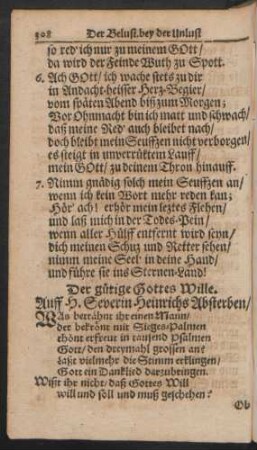 308 Der Belust. bey der Unlust
so red' ich nur zu meinem GOtt/
da wird der Feinde Wuth zu Spott.
6. Ach GOtt/ ich wache stets zu dir
in Andacht-heisser Herz-Begier/
vom späten Abend biß zum Morgen;
Vor Ohnmacht bin ich matt und schwach/
daß meine Red' auch bleibet nach/
doch bleibt mein Seuffzen nicht verborgen/
es steigt in unverrüktem Lauff/
mein GOtt/ zu deinem Thron hinauff.
7. Nimm gnädig solch mein Seuffzen an/
wenn ich kein Wort mehr reden kan;
Hör' ach! erhör mein leztes Flehen/
und laß mich in der Todes-Pein/
wenn aller Hülff entfernt wird seyn/
dich meinen Schuz und Retter sehen/
nimm meine Seel' in deine Hand/
und führe sie ins Sternen-Land!
Der gütige Gottes Wille.
Auff H. Severin Heinrichs Absterben/
WAs bethränt ihr einen Mann/
der bekrönt mit Sieges-Palmen
schönt erfreut in tausend Psalmen
Gott/ den dreymahl grossen an?
laßt vielmehr die Stimm erklingen/
Gott ein Danklied darzubringen.
Wißt ihr nicht/ daß Gottes Will
will und soll und muß geschehen?
Ob